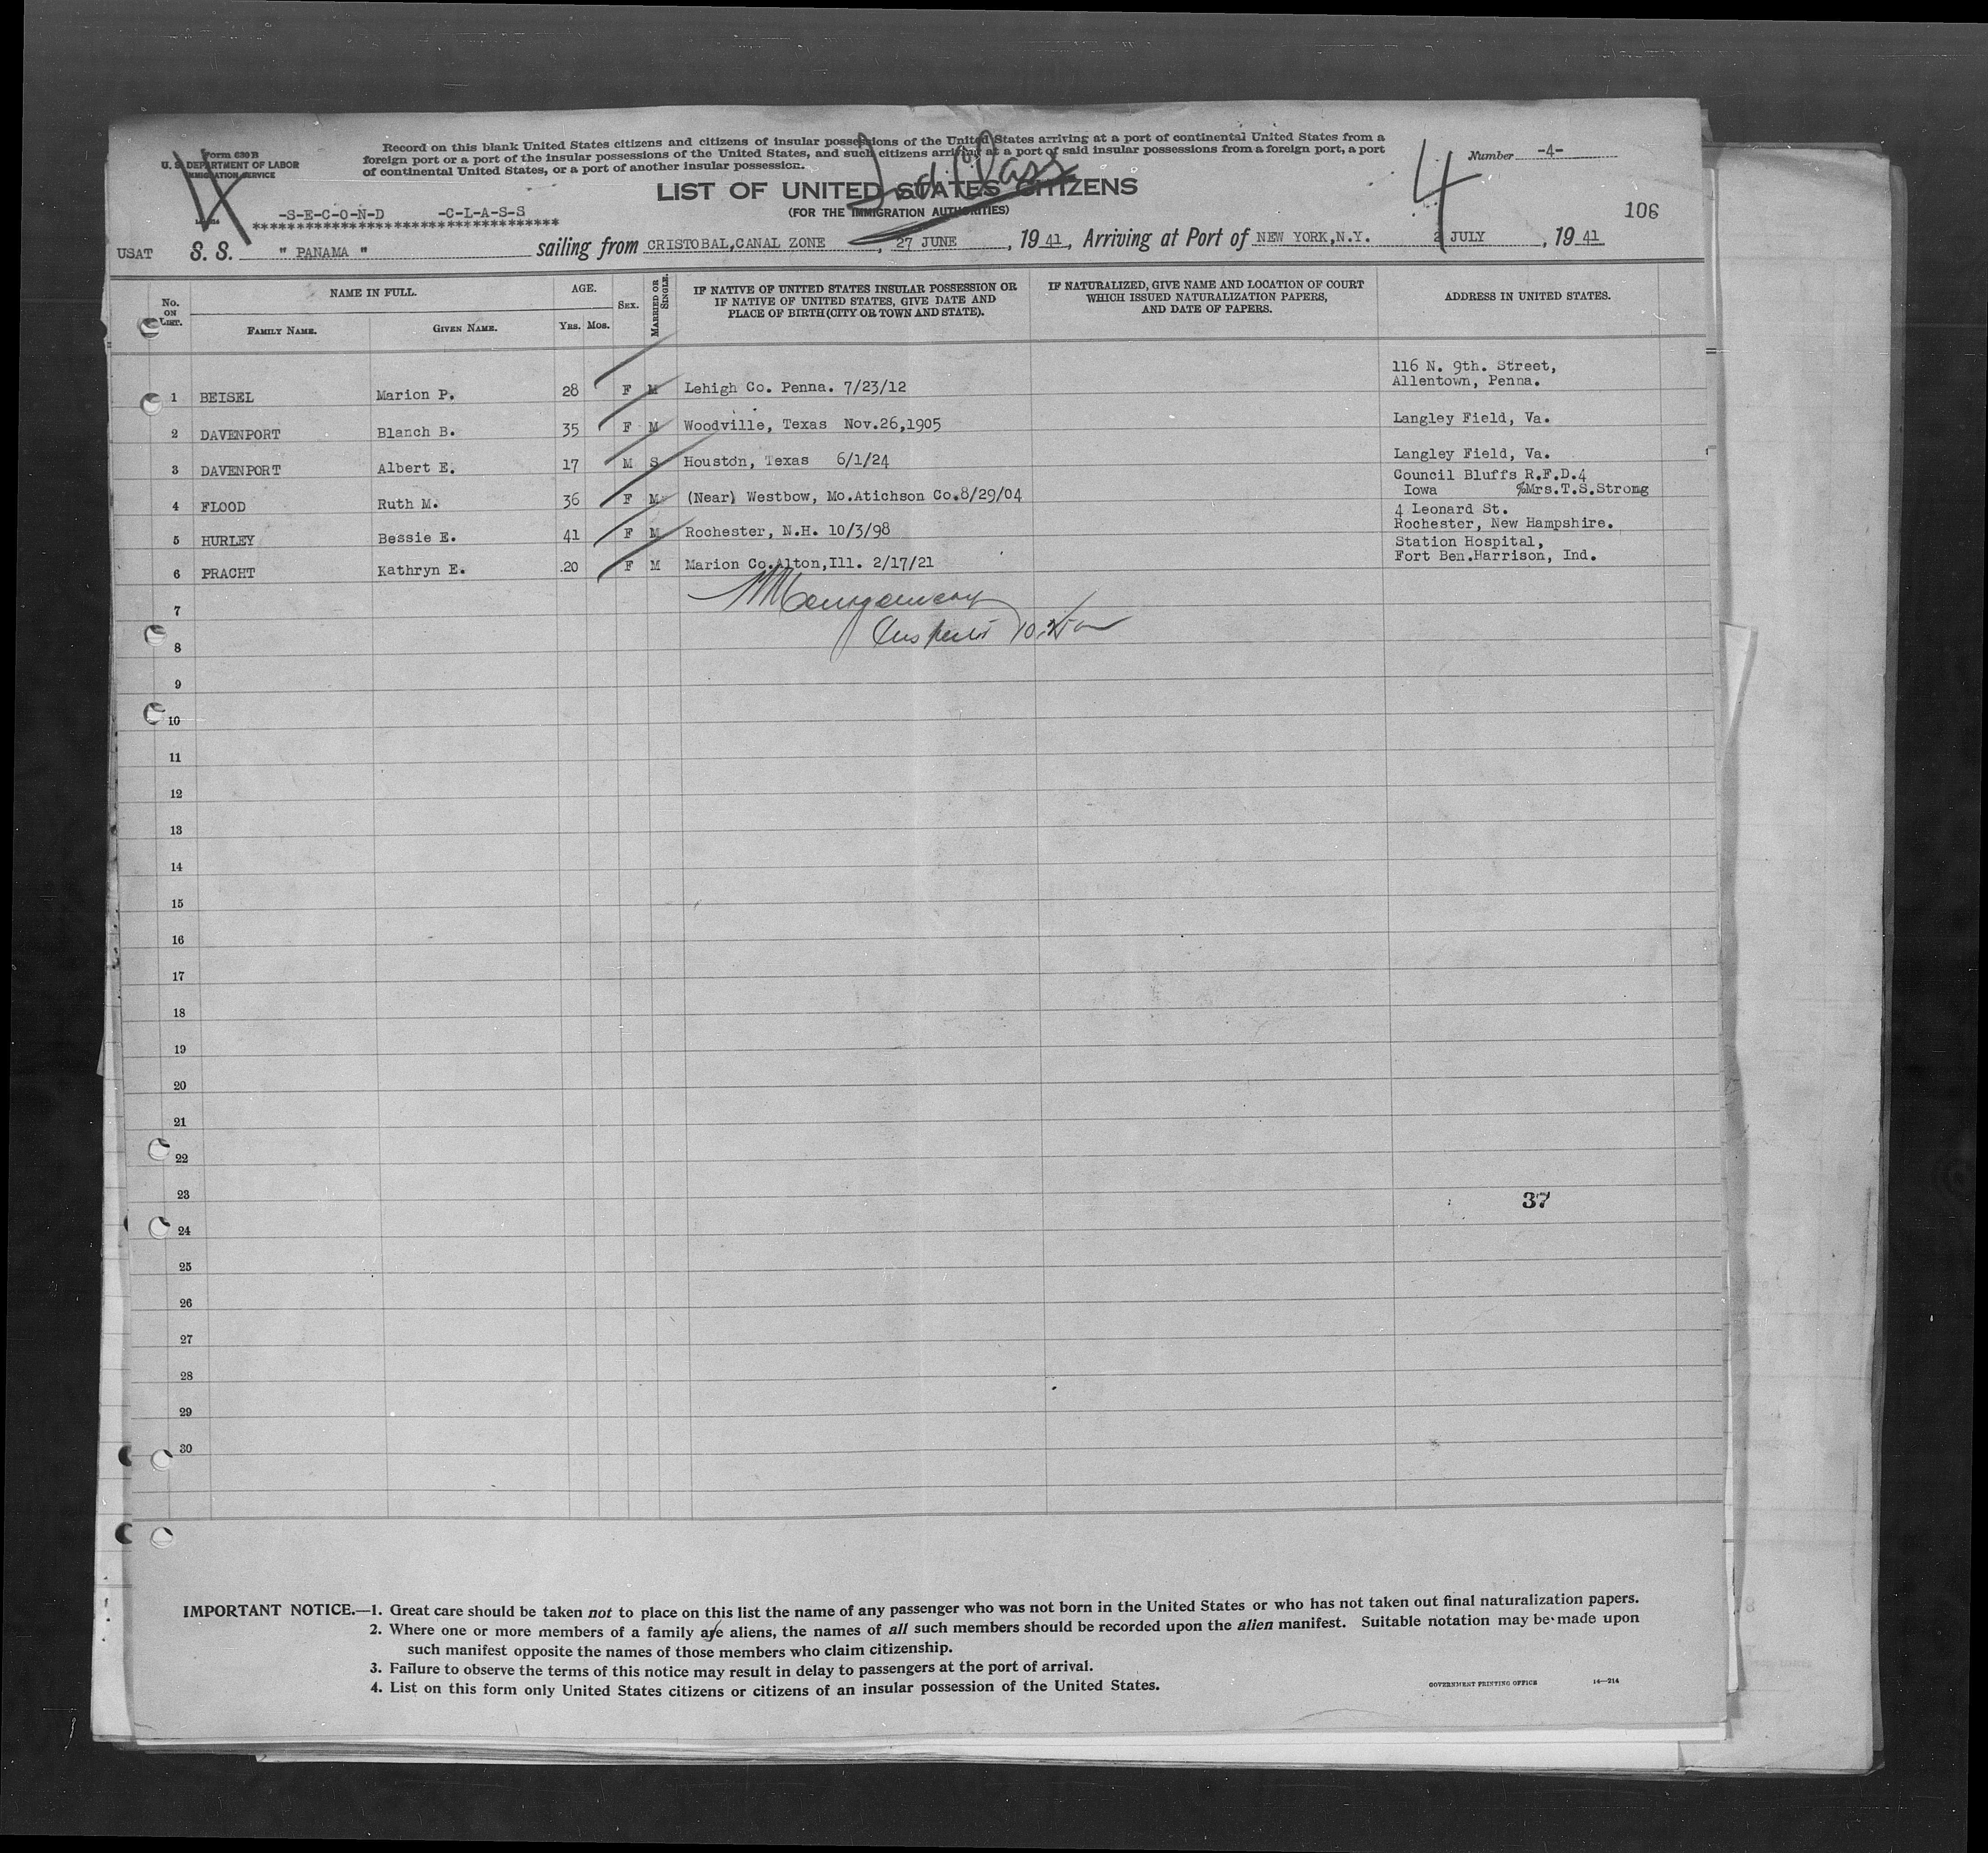 Form 630 B
U. S. DEPARTMENT OF LABOR
IMMIGRATION SERVICE
Record on this blank United States citizens and citizens of insular possessions of the United States arriving at a port of continental United States from a
foreign port or a port of the insular possessions of the United States, and such citizens arriving at a port of said insular possessions from a foreign port, a port
of continental United States, or a port of another insular possession.
Number -4-
4
2nd Class
LIST OF UNITED STATES CITIZENS
(FOR THE IMMIGRATION AUTHORITIES)
106
-S-E-C-O-N-D -C-L-A-S-S
USAT S. S. " PANAMA " sailing from CRISTOBAL,CANAL ZONE , 27 JUNE , 19 41, Arriving at Port of NEW YORK,N.Y. 2 JULY , 19 41
No. ON LIST.
NAME IN FULL.
FAMILY NAME. GIVEN NAME.
AGE.
YRS. MOS.
SEX.
MARRIED OR SINGLE.
IF NATIVE OF UNITED STATES INSULAR POSSESSION OR
IF NATIVE OF UNITED STATES, GIVE DATE AND
PLACE OF BIRTH (CITY OR TOWN AND STATE).
IF NATURALIZED, GIVE NAME AND LOCATION OF COURT
WHICH ISSUED NATURALIZATION PAPERS,
AND DATE OF PAPERS.
ADDRESS IN UNITED STATES.
1 BEISEL Marion P. 28 F M Lehigh Co. Penna. 7/23/12 116 N. 9th. Street,
Allentown, Penna.
2 DAVENPORT Blanch B. 35 F M Woodville, Texas Nov.26,1905 Langley Field, Va.
3 DAVENPORT Albert E. 17 M S Houston, Texas 6/1/24 Langley Field, Va.
4 FLOOD Ruth M. 36 F M (Near) Westbow, Mo.Atichson Co.8/29/04 Council Bluffs R.F.D.4
Iowa %Mrs.T.S.Strong
5 HURLEY Bessie E. 41 F M Rochester, N.H. 10/3/98 4 Leonard St.
Rochester, New Hampshire.
6 PRACHT Kathryn E. 20 F M Marion Co.Alton,Ill. 2/17/21 Station Hospital,
Fort Ben.Harrison, Ind.
7
8
9
10
11
12
13
14
15
16
17
18
19
20
21
22
23
37
24
25
26
27
28
29
30
IMPORTANT NOTICE.—1. Great care should be taken not to place on this list the name of any passenger who was not born in the United States or who has not taken out final naturalization papers.
2. Where one or more members of a family are aliens, the names of all such members should be recorded upon the alien manifest. Suitable notation may be made upon
such manifest opposite the names of those members who claim citizenship.
3. Failure to observe the terms of this notice may result in delay to passengers at the port of arrival.
4. List on this form only United States citizens or citizens of an insular possession of the United States.
GOVERNMENT PRINTING OFFICE 14—214